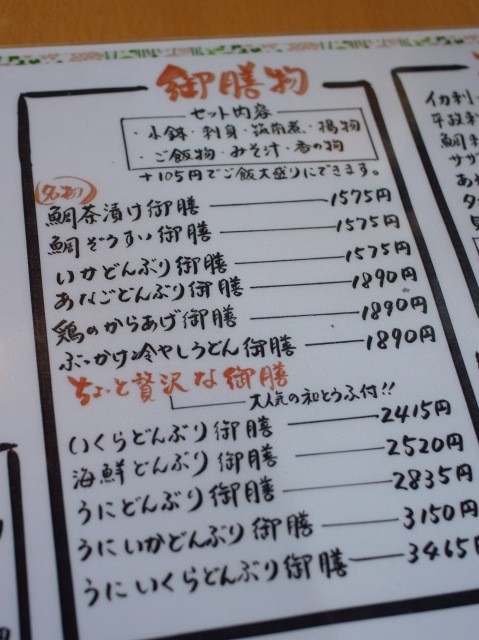 御膳物
セット内容
・小鉢・刺身・筑前煮・揚物
・ご飯物・みそ汁・香の物
+105円でご飯大盛りにできます。
名物
鯛茶漬け御膳 1575円
鯛ぞうすい御膳 1575円
いかどんぶり御膳 1575円
あなごどんぶり御膳 1890円
鶏のからあげ御膳 1890円
ぶっかけ冷やしうどん御膳 1890円
ちょっと贅沢な御膳
大人気の和とうふ付!!
いくらどんぶり御膳 2415円
海鮮どんぶり御膳 2520円
うにどんぶり御膳 2835円
うにいかどんぶり御膳 3150円
うにいくらどんぶり御膳 3465円
イカ刺
平政
鯛刺
サザ
あ